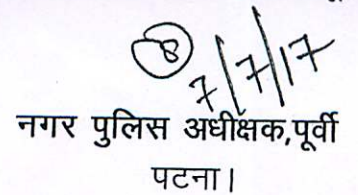 7/7/17
नगर पुलिस अधीक्षक,पूर्वी
पटना।